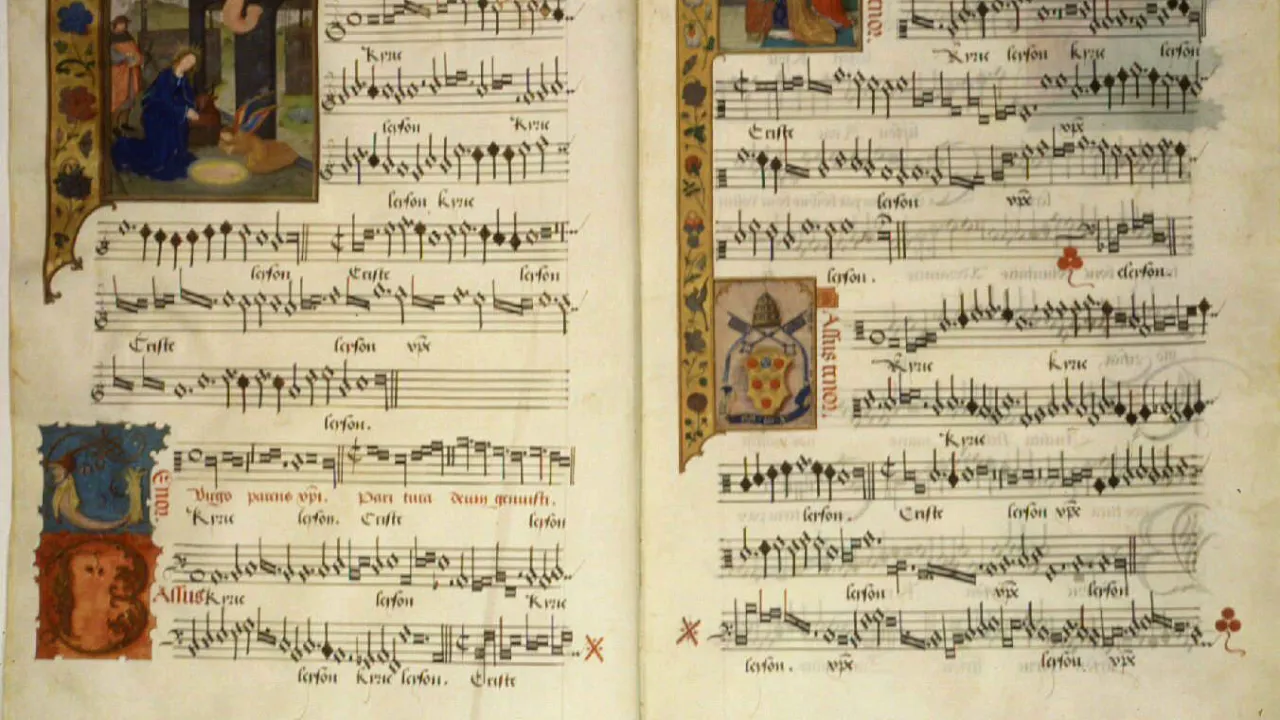 Kyrie
leyson Kyrie
leyson kyrie
leyson Criste leyson
Criste leyson xpe
leyson.
Enor
Virgo parens xpi. Pari tura deum genuisti.
Kyrie leyson. Criste leyson
Assus Kyrie leyson Kyrie
leyson kyrie leyson. Criste
Kyrie leyson kyrie leyson
Criste xpe
leyson xpe
leyson. eleyson.
Assus tenor.
Kyrie Kyrie
Kyrie
leyson. Criste leyson xpe
leyson xpe leyson
leyson. xpe leyson xpe